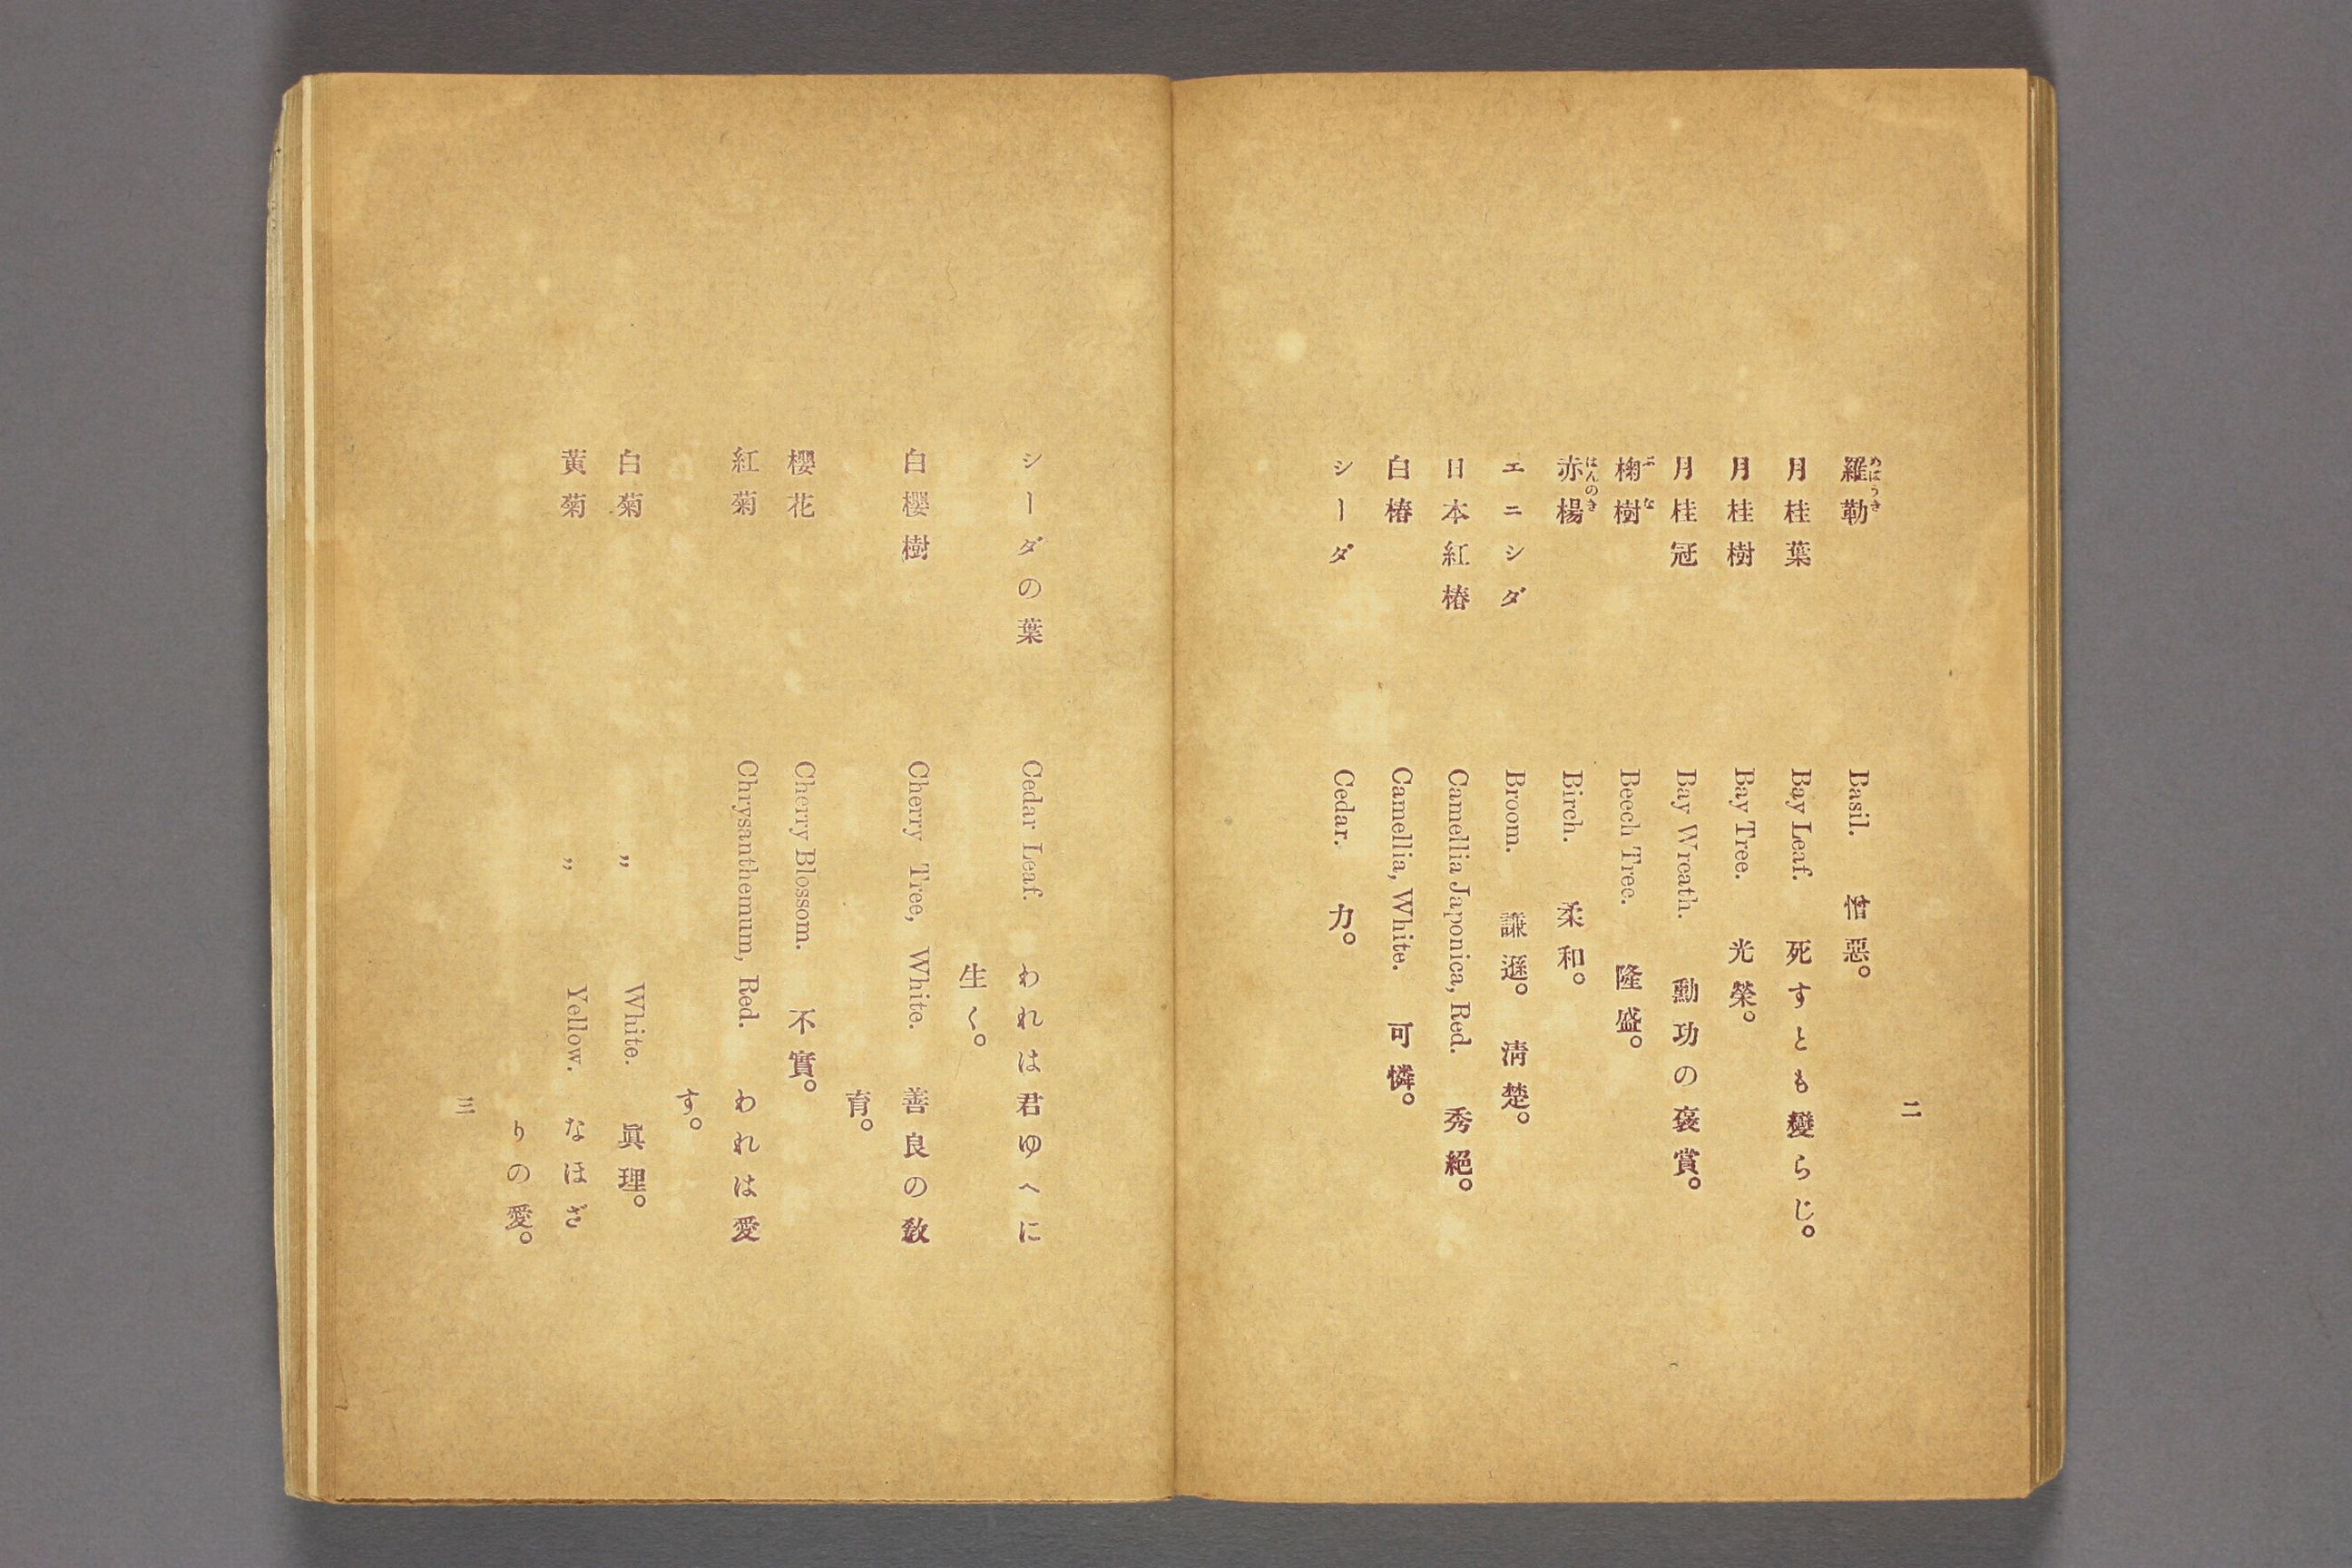 二
羅勒 Basil. 憎惡。
めばうき
月桂葉 Bay Leaf. 死すとも變らじ。
月桂樹 Bay Tree. 光榮。
月桂冠 Bay Wreath. 勳功の褒賞。
椈樹 Beech Tree. 隆盛。
ぶな
赤楊 Birch. 柔和。
はんのき
エニシダ Broom. 謙遜。淸楚。
日本紅椿 Camellia Japonica, Red. 秀絕。
白椿 Camellia, White. 可憐。
シーダ Cedar. 力。
シーダの葉 Cedar Leaf. われは君ゆへに
生く。
白櫻樹 Cherry Tree, White. 善良の敎
育。
櫻花 Cherry Blossom. 不實。
紅菊 Chrysanthemum, Red. われは愛
す。
白菊 〃 White. 眞理。
黃菊 〃 Yellow. なほざ
りの愛。
三